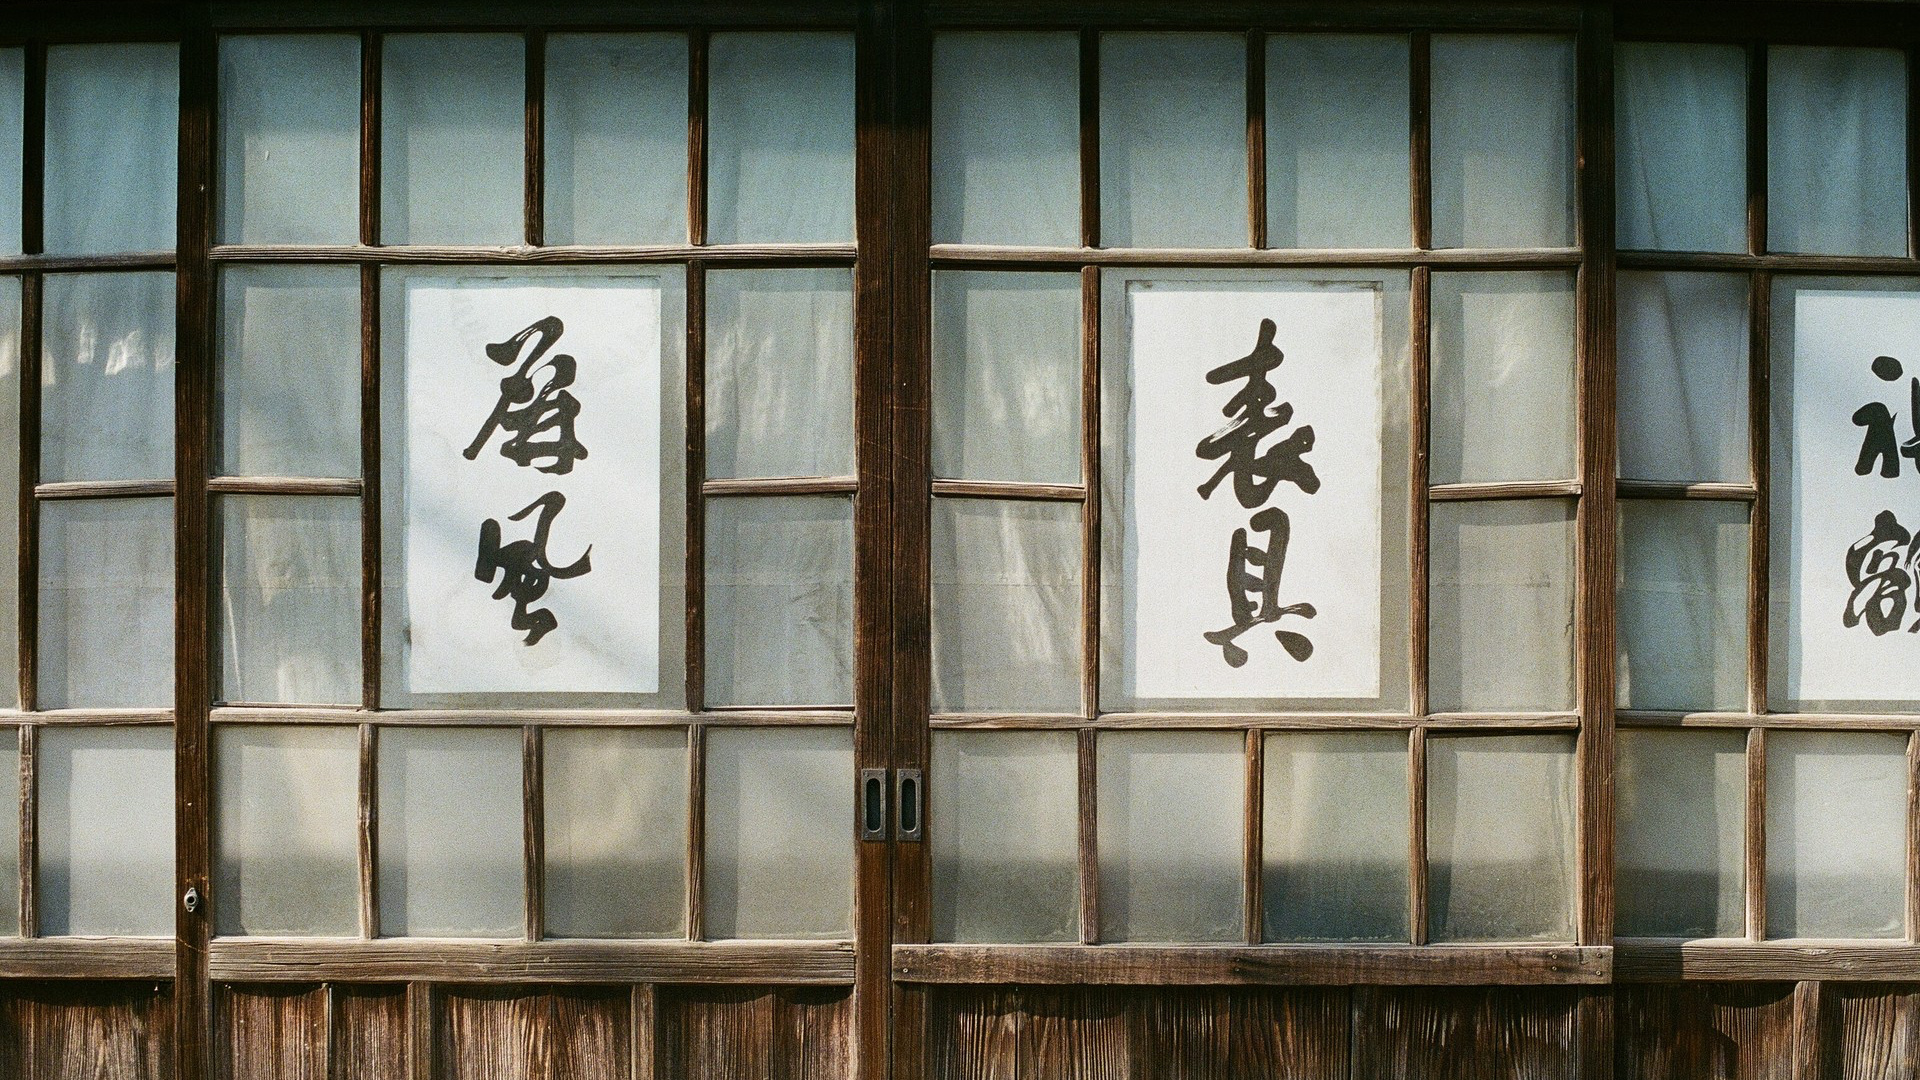 屏風
表具
額